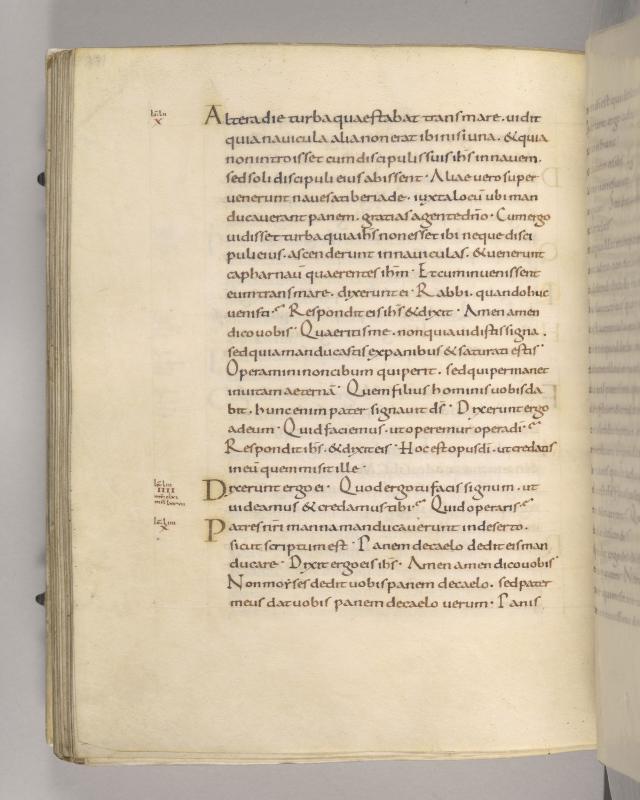 Altera die turba quae stabat trans mare. uidit
quia nauicula alia non erat ibi nisi una. & quia
non introisset cum discipulis suis ihs in nauem.
sed soli discipuli eius abissent. Aliae uero super
uenerunt naues a tiberiade. iuxta locū ubi man
ducauerant panem. gratias agente dño. Cum ergo
uidisset turba quia ihs non esset ibi neque disci
puli eius. ascenderunt in nauiculas. & uenerunt
capharnaū quaerentes ihm. Et cum inuenissent
eum trans mare. dixerunt ei. Rabbi. quando huc
uenisti. Respondit eis ihs & dixit. Amen amen
dico uobis. Quaeritis me. non quia uidistis signa.
sed quia manducastis ex panibus & saturati estis.
Operamini non cibum qui perit. sed qui permanet
in uitam aeternā. Quem filius hominis uobis da
bit. hunc enim pater signauit ds. Dixerunt ergo
ad eum. Quid faciemus. ut operemur opera di.
Respondit ihs. & dixit eis. Hoc est opus di. ut credatis
in eū quem misit ille.
Dixerunt ergo ei. Quod ergo tu facis signum. ut
uideamus & credamus tibi. Quid operaris.
Patres nri manna manducauerunt in deserto.
sicut scriptum est. Panem de caelo dedit eis man
ducare. Dixit ergo eis ihs. Amen amen dico uobis.
Non moyses dedit uobis panem de caelo. sed pater
meus dat uobis panem de caelo uerum. Panis
X
IIII
X